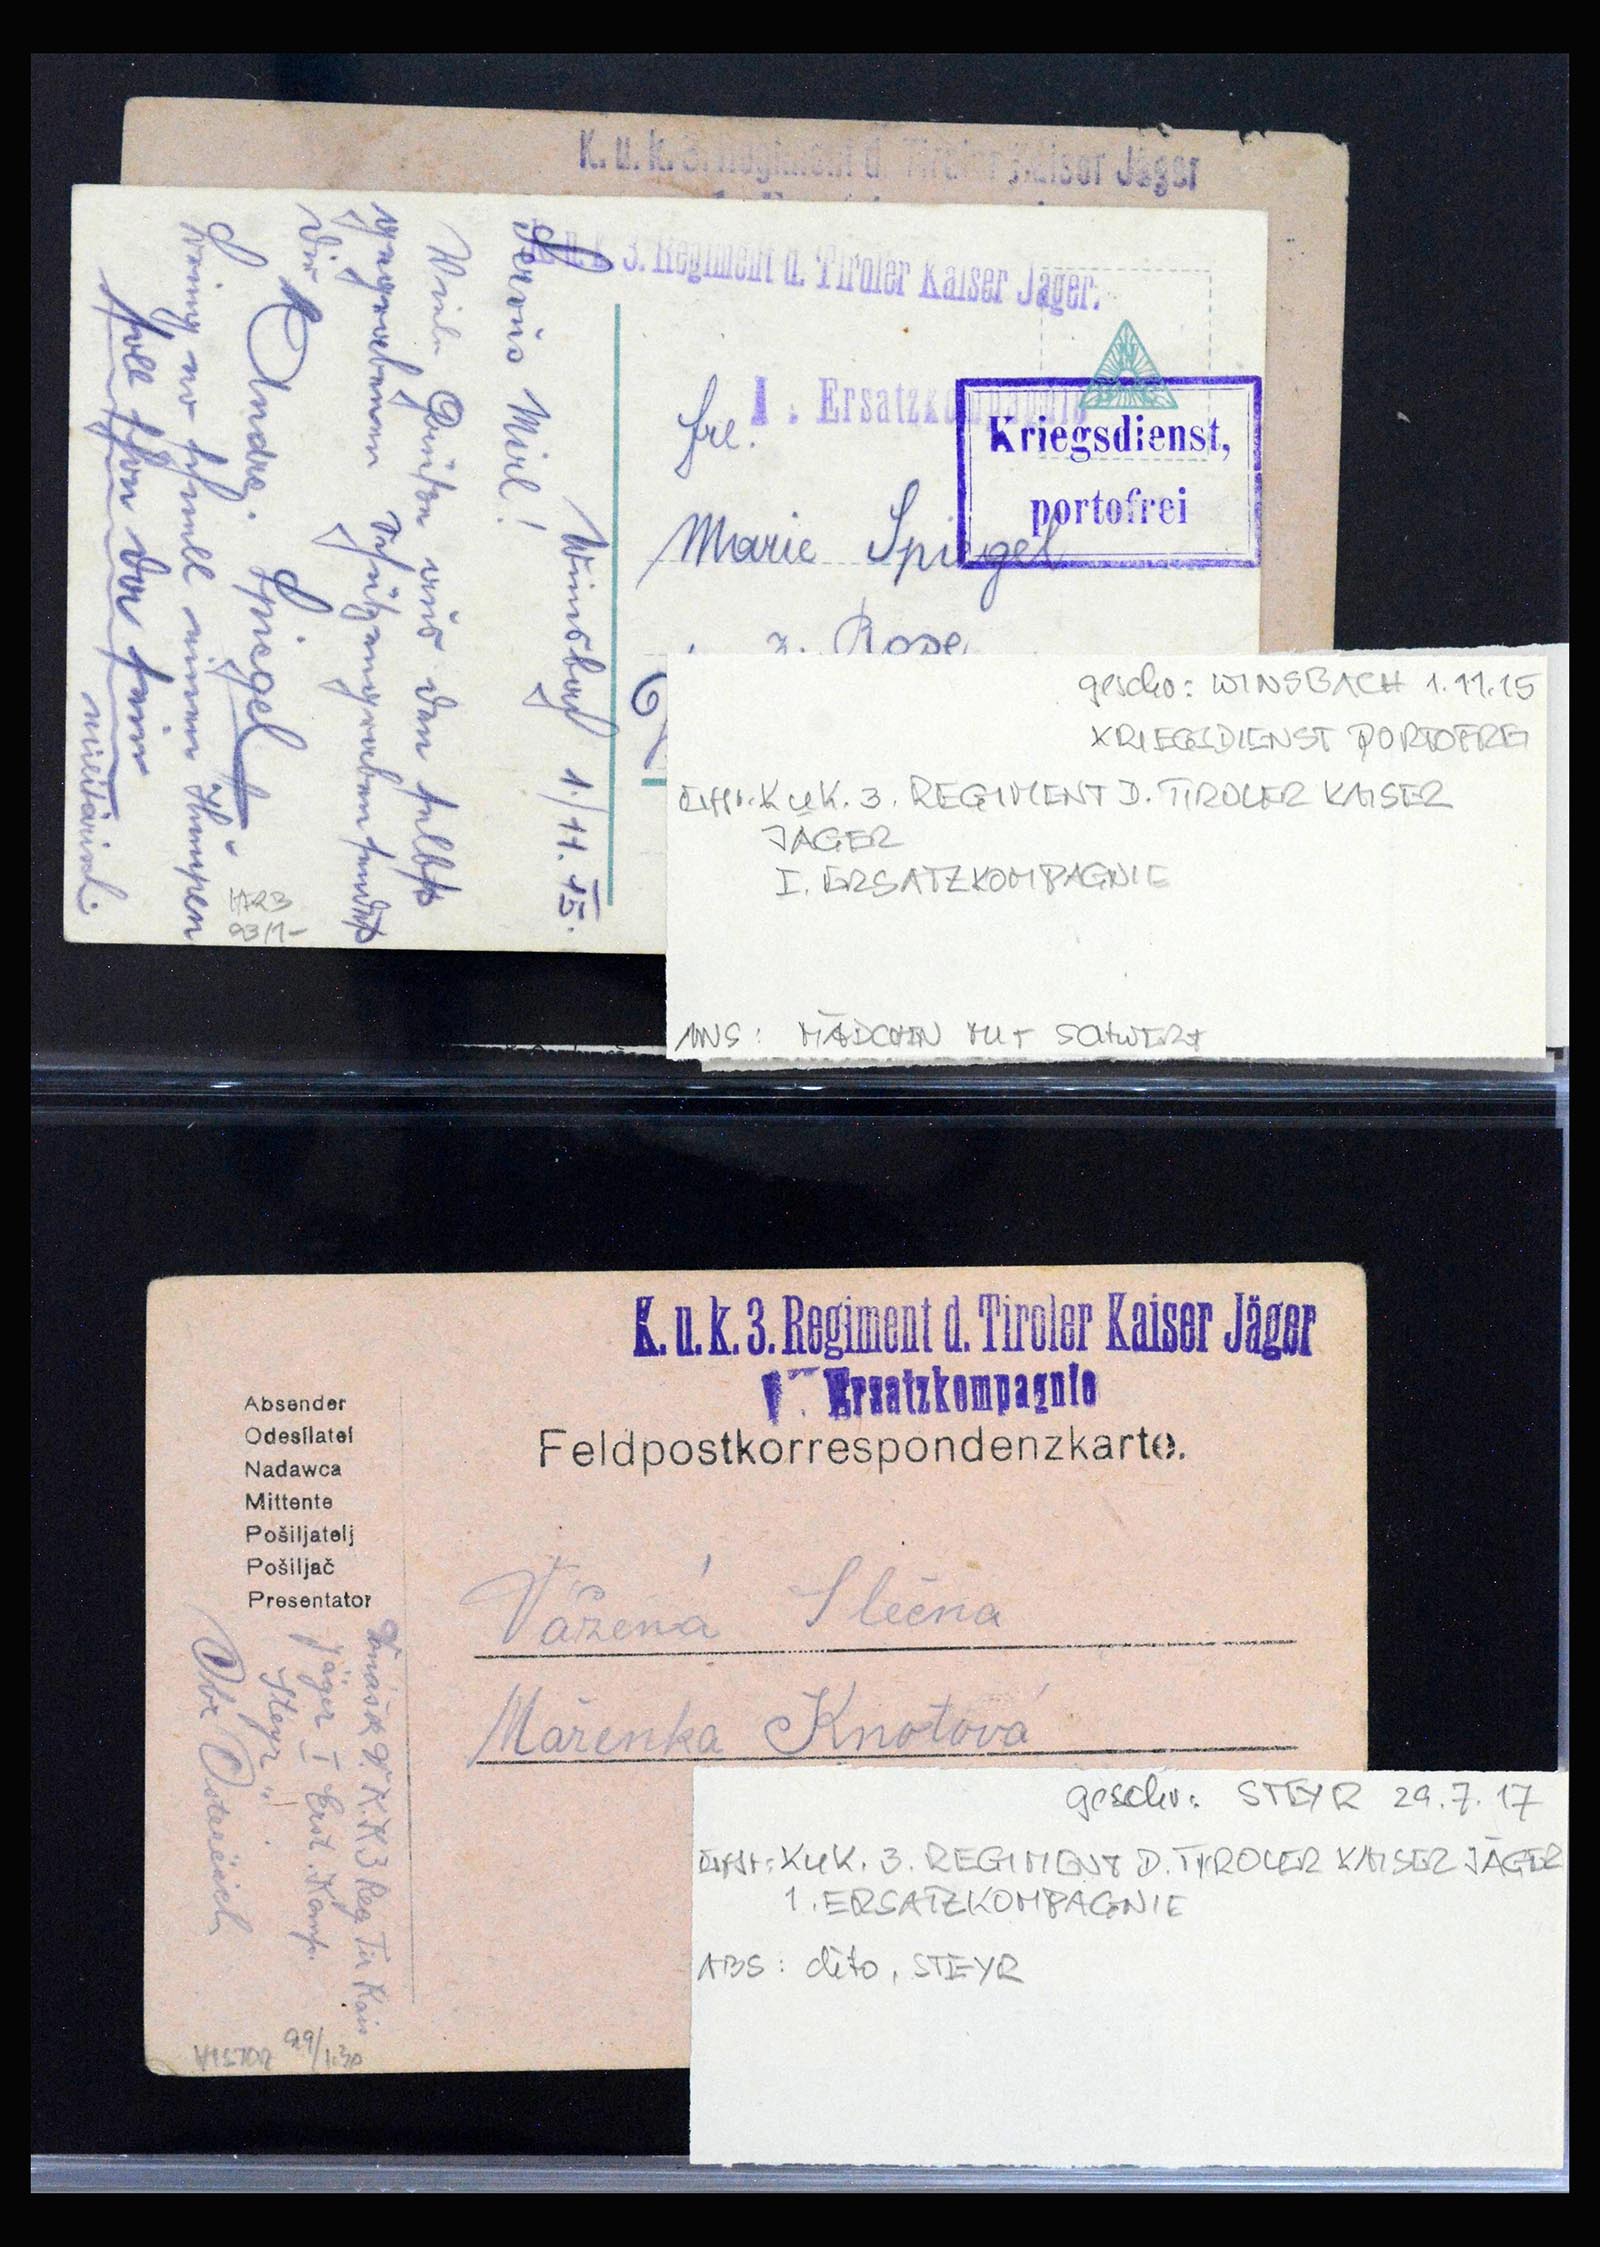 K. u. k. 3. Regiment d. Tiroler Kaiser Jäger
K. u. k 3. Regiment d. Tiroler Kaiser Jäger.
I. Ersatzkompagnie
Kriegsdienst,
portofrei
Winsbach 1./11. 15.
Servus Mirl!
Viele Grüße aus dem selbst
gegrabenen Schützengraben sendet
Dir
Andre. Spiegel
Frl.
Marie Spiegel
z. Rose
93/1-
geschr: WINSBACH 1.11.15
KRIEGSDIENST PORTOFREI
K u K. 3. REGIMENT D. TIROLER KAISER
JÄGER
I. ERSATZKOMPAGNIE
ANS: MÄDCHEN MIT SCHWERT
K. u. k. 3. Regiment d. Tiroler Kaiser Jäger
Ersatzkompagnie
Feldpostkorrespondenzkarte.
Absender
Odesílatel
Nadawca
Mittente
Pošiljatelj
Pošiljač
Presentator
K. K 3 Reg Tir Kais
Jäger I Erst. Komp.
Steyr
Obr Österreich
Vážená Slečna
Mařenka Knotová
99/1.30
geschr: STEYR 29.7.17
KuK. 3. REGIMENT D. TIROLER KAISER JÄGER
1. ERSATZKOMPAGNIE
ABS: dito, STEYR